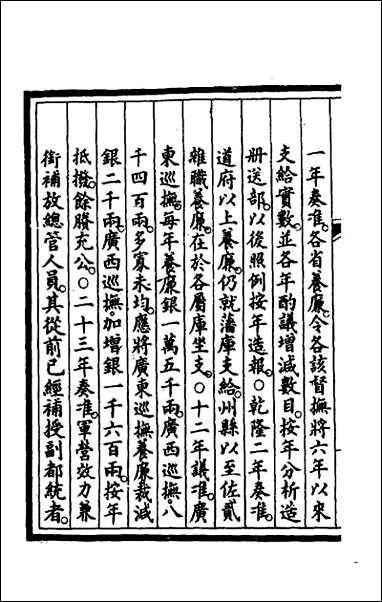 一年奏准。各省養廉。令各該督撫將六年以來
支給實數。並各年酌議增減數目。按年分析造
册送部。以後照例按年造報。○乾隆二年奏准。
道府以上養廉。仍就藩庫支給。州縣以至佐貳
雜職養廉。在於各屬庫坐支。○十二年議准。廣
東巡撫。每年養廉銀一萬五千兩。廣西巡撫。八
千四百兩。多寡未均。應將廣東巡撫養廉裁減
銀二千兩。廣西巡撫。加增銀一千六百兩。按年
抵撥。餘賸充公。○二十三年奏准。軍營效力兼
銜補放總管人員。其從前已經補授副都統者。